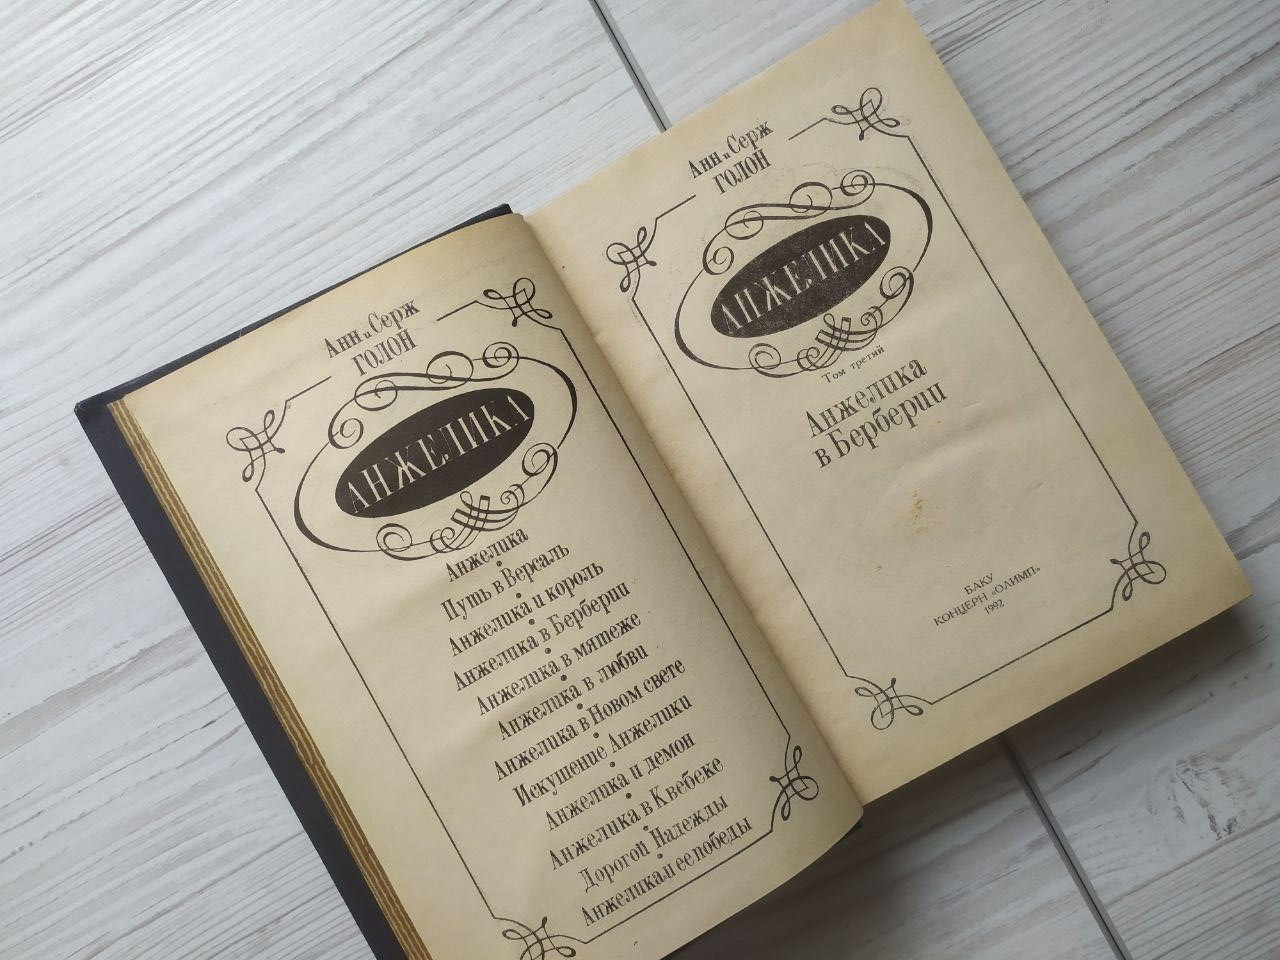 Анн и Серж
ГОЛОН
АНЖЕЛИКА
Анжелика
Путь в Версаль
Анжелика и король
Анжелика в Берберии
Анжелика в мятеже
Анжелика в любви
Анжелика в Новом свете
Искушение Анжелики
Анжелика и демон
Анжелика в Квебеке
Дорогой Надежды
Анжелика и ее победы
Анн и Серж
ГОЛОН
АНЖЕЛИКА
Том третий
Анжелика
в Берберии
БАКУ
КОНЦЕРН «ОЛИМП»
1992